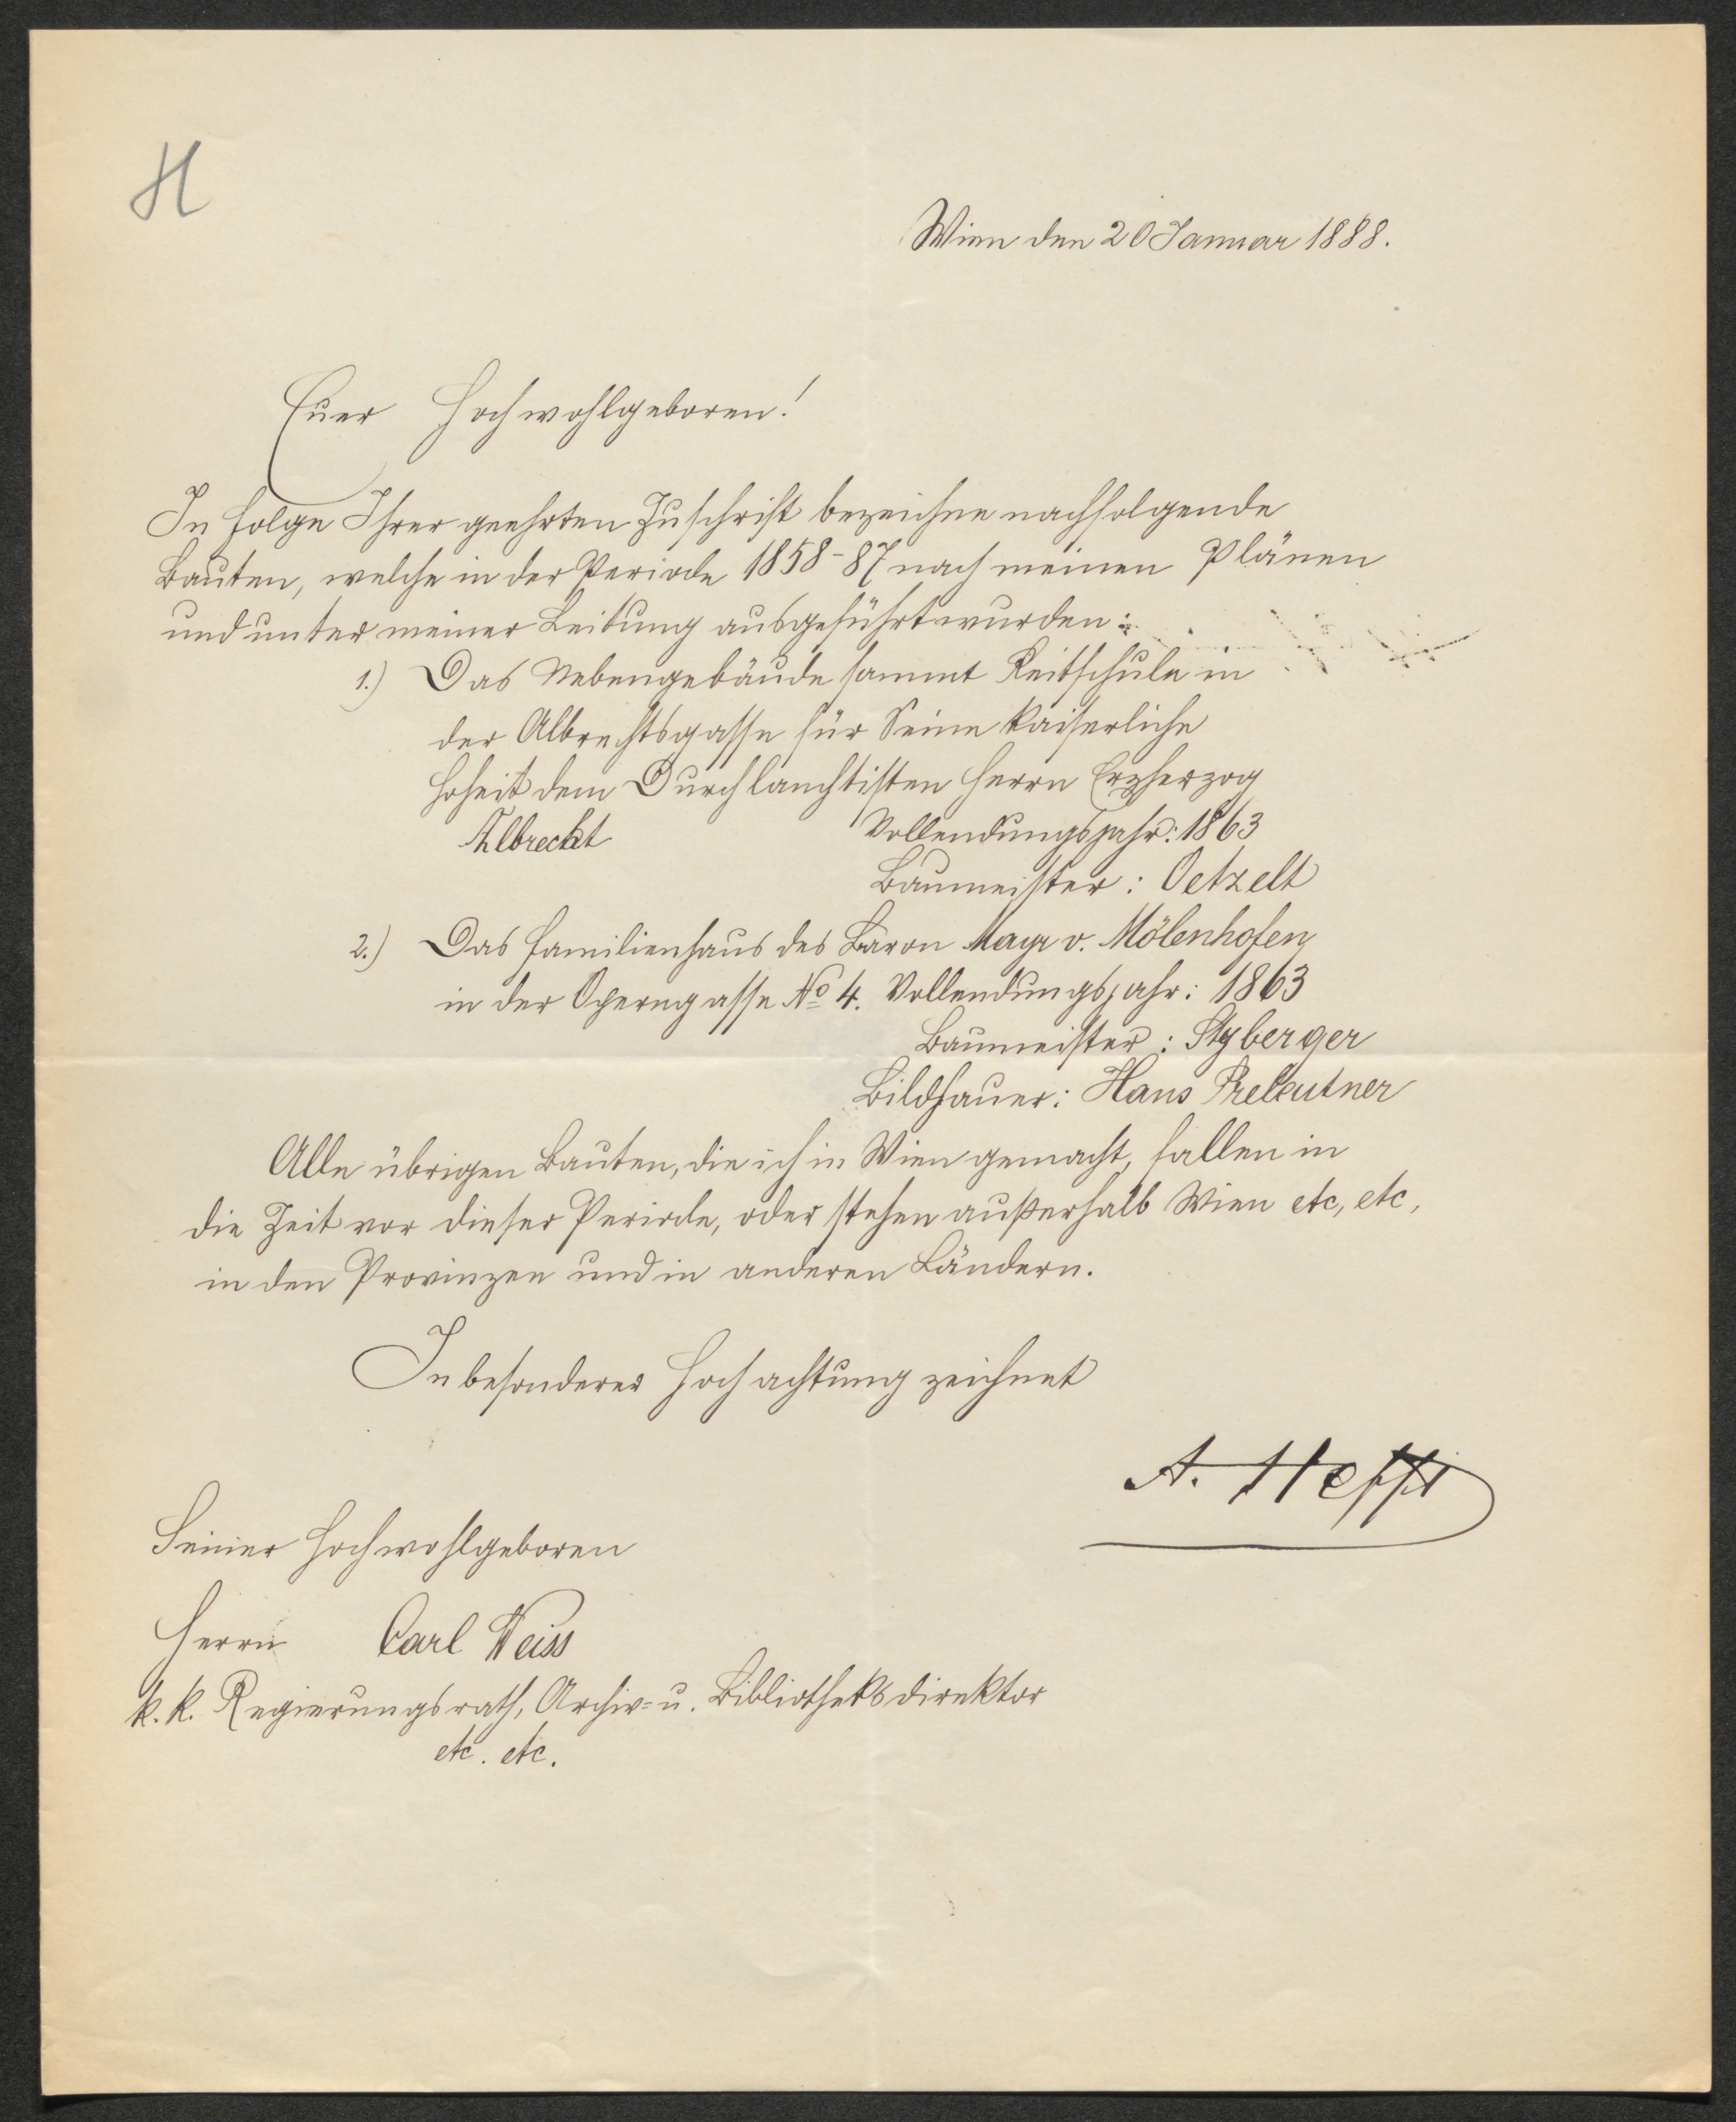 H
Wien den 20 Januar 1888.
Euer Hochwohlgeboren!
In Folge Ihrer geehrten Zuschrift bezeichne nachfolgende
Bauten, welche in der Periode 1858-87 nach meinen Plänen
und unter meiner Leitung ausgeführt wurden:
1.) Das Nebengebäude sammt Reitschule in
der Albrechtsgasse für Seine Kaiserliche
Hoheit dem Durchlauchtisten Herrn Erzherzog
Albrecht Vollendungsjahr: 1863
Baumeister: Oetzelt
2.) Das Familienhaus des Baron Mayr v. Mölenhofen
in der Operngasse No 4. Vollendungsjahr: 1863
Baumeister: Styberger
Bildhauer: Hans Preleutner
Alle übrigen Bauten, die ich in Wien gemacht, fallen in
die Zeit vor dieser Periode, oder stehen außerhalb Wien etc, etc,
in den Provinzen und in anderen Ländern.
In besonderer Hochachtung zeichnet
A. Hefft
Seiner Hochwohlgeboren
Herrn Carl Weiss
k. k. Regierungsrath, Archiv= u. Bibliotheksdirektor
etc. etc.